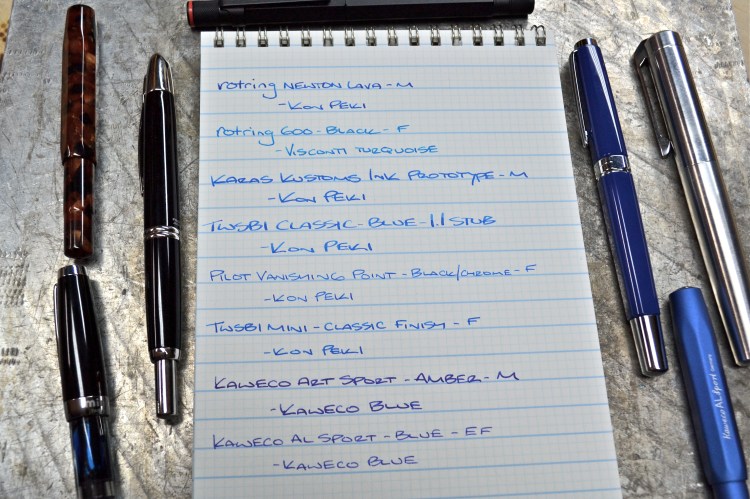 rotring NEWTON LAVA - M
- KON PEKI
rotring 600 - BLACK - F
- VISCONTI TURQUOISE
KARAS KUSTOMS INK PROTOTYPE - M
- KON PEKI
TWSBI CLASSIC - BLUE - 1.1 STUB
- KON PEKI
PILOT VANISHING POINT - BLACK/CHROME - F
- KON PEKI
TWSBI MINI - CLASSIC FINISH - F
- KON PEKI
KAWECO ART SPORT - AMBER - M
- KAWECO BLUE
KAWECO AL SPORT - BLUE - EF
- KAWECO BLUE
Kaweco AL Sport